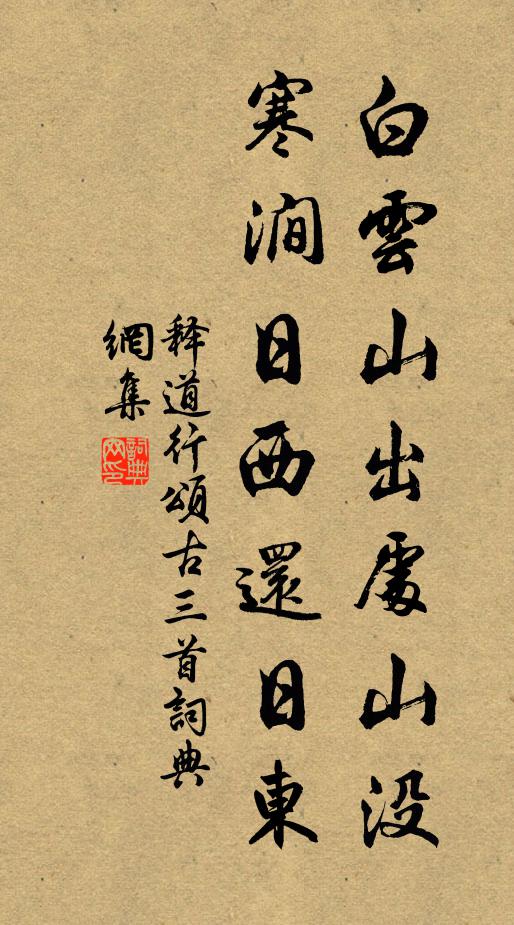 白雲山出處山没
寒澗日西還日東
释道行頌古三首詞典
網集
詞典
网印